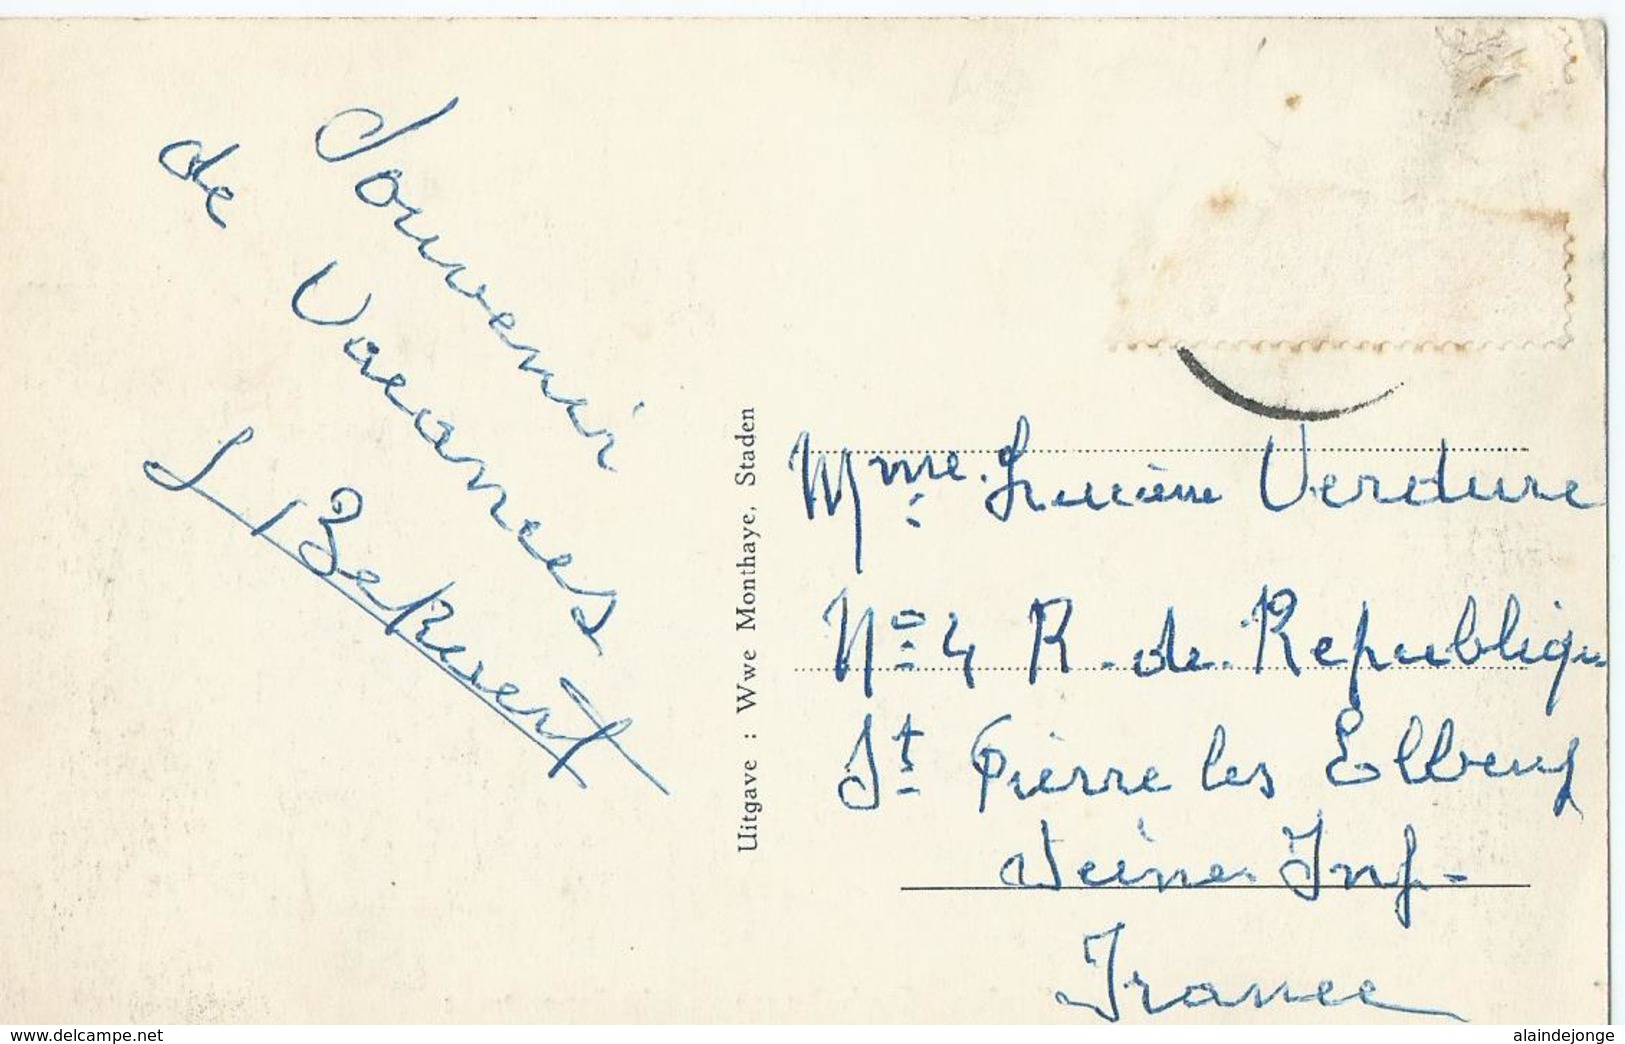 Souvenir
de Vacances
L Bekaert
Uitgave : Wwe Monthaye, Staden
Mme. Lucienne Verdure
No 4 R. de Republique
St Pierre les Elbeuf
Seine Inf-
France
www.delcampe.net
alaindejonge